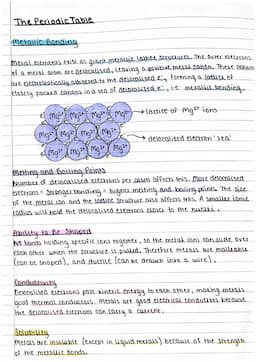 The Periodic Table
Metallic Bonding
Metal elements exist as giant metallic lattice structures. The outer electrons
of a metal atom are delocalised, leaving a positive metal cation. These cations
are electrostatically attracted to the delocalised e⁻, forming a lattice of
closely packed cations in a sea of delocalised e⁻, i.e metallic bonding.
Mg²⁺ Mg²⁺ Mg²⁺ Mg²⁺ → lattice of Mg²⁺ ions
Mg²⁺ Mg²⁺ Mg²⁺ Mg²⁺ → delocalised electron 'sea'
Mg²⁺ Mg²⁺ Mg²⁺ Mg²⁺
Melting and Boiling Points
Number of delocalised electrons per atom affects this. More delocalised
electrons = stronger bonding = higher melting and boiling points. The size
of the metal ion and the lattice structure also affects this. A smaller ionic
radius will hold the delocalised electrons closer to the nuclei.
Ability to Be Shaped
No bonds holding specific ions together, so the metal ions can slide over
each other when the structure is pulled. Therefore metals are malleable
(can be shaped), and ductile (can be drawn into a wire).
Conductivity
Delocalised electrons pass kinetic energy to each other, making metals
good thermal conductors. Metals are good electrical conductors because
the delocalised electrons can carry a current.
Solubility
Metals are insoluble (except in liquid metals) because of the strength
of the metallic bonds.